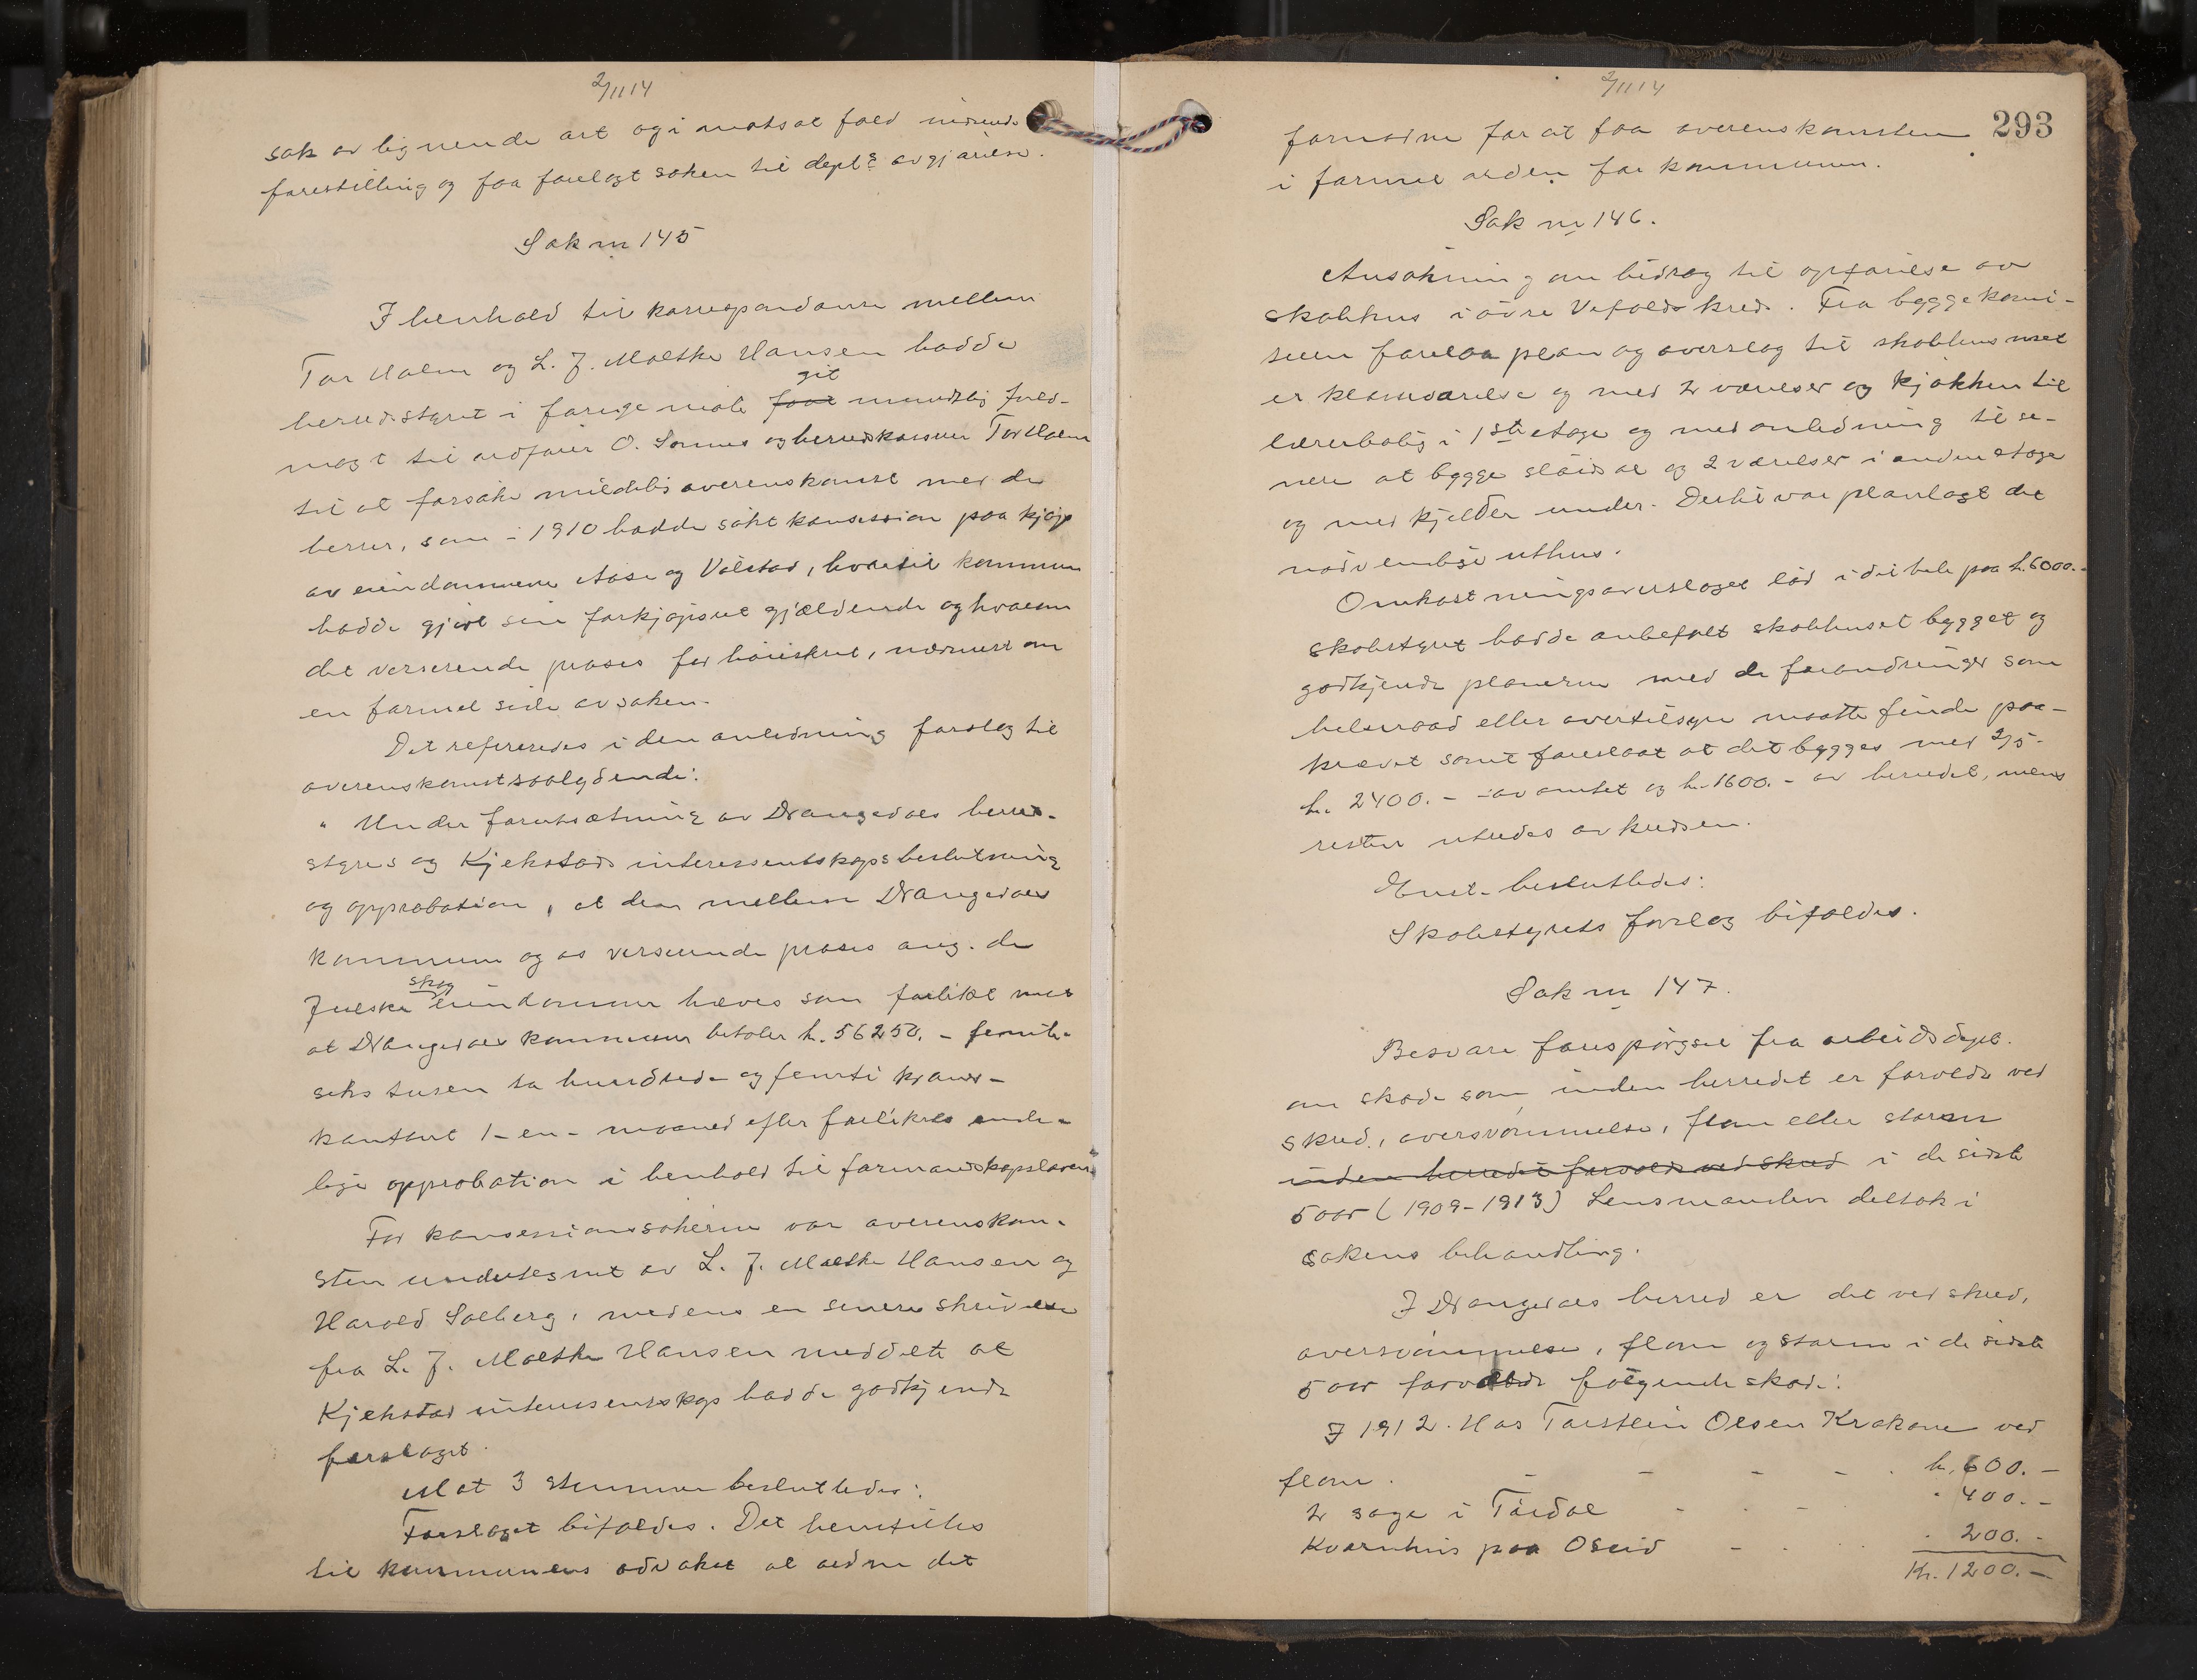 2/11 14
sak av lignende art og i motsat fald indsende
forestilling og faa forelagt saken til depts avgjørelse.
Sak nr 145
I henhold til korrespondanse mellem
Tor Holm og L. J. Moltke Hansen hadde
herredsstyret i forrige møte faat git mundtlig fuld-
magt til ordfører O. Sannes og herredskasserer Tor Holm
til at forsøke mindelig overenskomst med de
herrer, som i 1910 hadde søkt konsession paa kjøp
av eiendommene Aase og Vølstad, hvortil kommunen
hadde gjort sin forkjøpsret gjældende og hvorom
det verserende proses for høiesteret, nærmest om
en formel side av saken.
Det refereredes i den anledning forslag til
overenskomst saalydende:
" Under forutsætning av Drangedals herreds-
styres og Kjekstad interessentskaps beslutning
og approbation, at den mellem Drangedals
kommune og os verserende proses ang. de
Juelske skog eiendommer hæves som forlikt mot
at Drangedals kommune betaler kr. 56250.- femti-
seks tusen to hundrede og femti kroner -
kontant 1 - en - maaned efter forlikets ende-
lige approbation i henhold til formandskapsloven"
For konsessionssøkerne var overenskom-
sten undertegnet av L. J. Moltke Hansen og
Harald Solberg, medens en senere skrivelse
fra L. J. Moltke Hansen meddelte at
Kjekstad interessentskap hadde godkjendt
forslaget.
Mot 3 stemmer besluttedes:
Forslaget bifaldes. Det henstilles
til kommunens advokat at ordne det
2/11 14
293
fornødne for at faa overenskomsten
i formel orden for kommunen.
Sak nr 146.
Ansøkning om bidrag til opførelse av
skolehus i øvre Vefalds kreds. Fra byggekomi-
seen forelaa plan og overslag til skolehus med
et klasseværelse og med 2 værelser og kjøkken til
lærerbolig i 1ste etage og med anledning til se-
nere at bygge sløidsal og 2 værelser i anden etage
og med kjelder under. Dertil var planlagt det
nødvendige uthus.
Omkostningsoverslaget lød i det hele paa kr. 6000.-
Skolestyret hadde anbefalt skolehuset bygget og
godkjendt planerne med de forandringer som
helseraad eller overtilsyn maatte finde paa-
krævet samt foreslaat at det bygges med 2/5 -
kr. 2400.- av amtet og kr. 1600.- av herredet, mens
resten utredes av kredsen.
Enst. besluttedes:
Skolestyrets forslag bifaldes.
Sak nr 147.
Besvare forespørgsel fra arbeidsdept.
om skade som inden herredet er forvoldt ved
skred, oversvømmelse, flom eller storm
inden herredet forvoldt ved skred i de sidste
5 aar (1909-1913) Lensmanden deltok i
sakens behandling.
I Drangedals herred er det ved skred,
oversvømmelse, flom og storm i de sidste
5 aar forvoldt følgende skade:
I 1912. Hos Torstein Olsen Krokane ved
flom. - - - - kr. 600.-
2 sage i Tørdal - - - " 400.-
Kvernhus paa Oseid - - - " 200.-
Kr. 1200.-